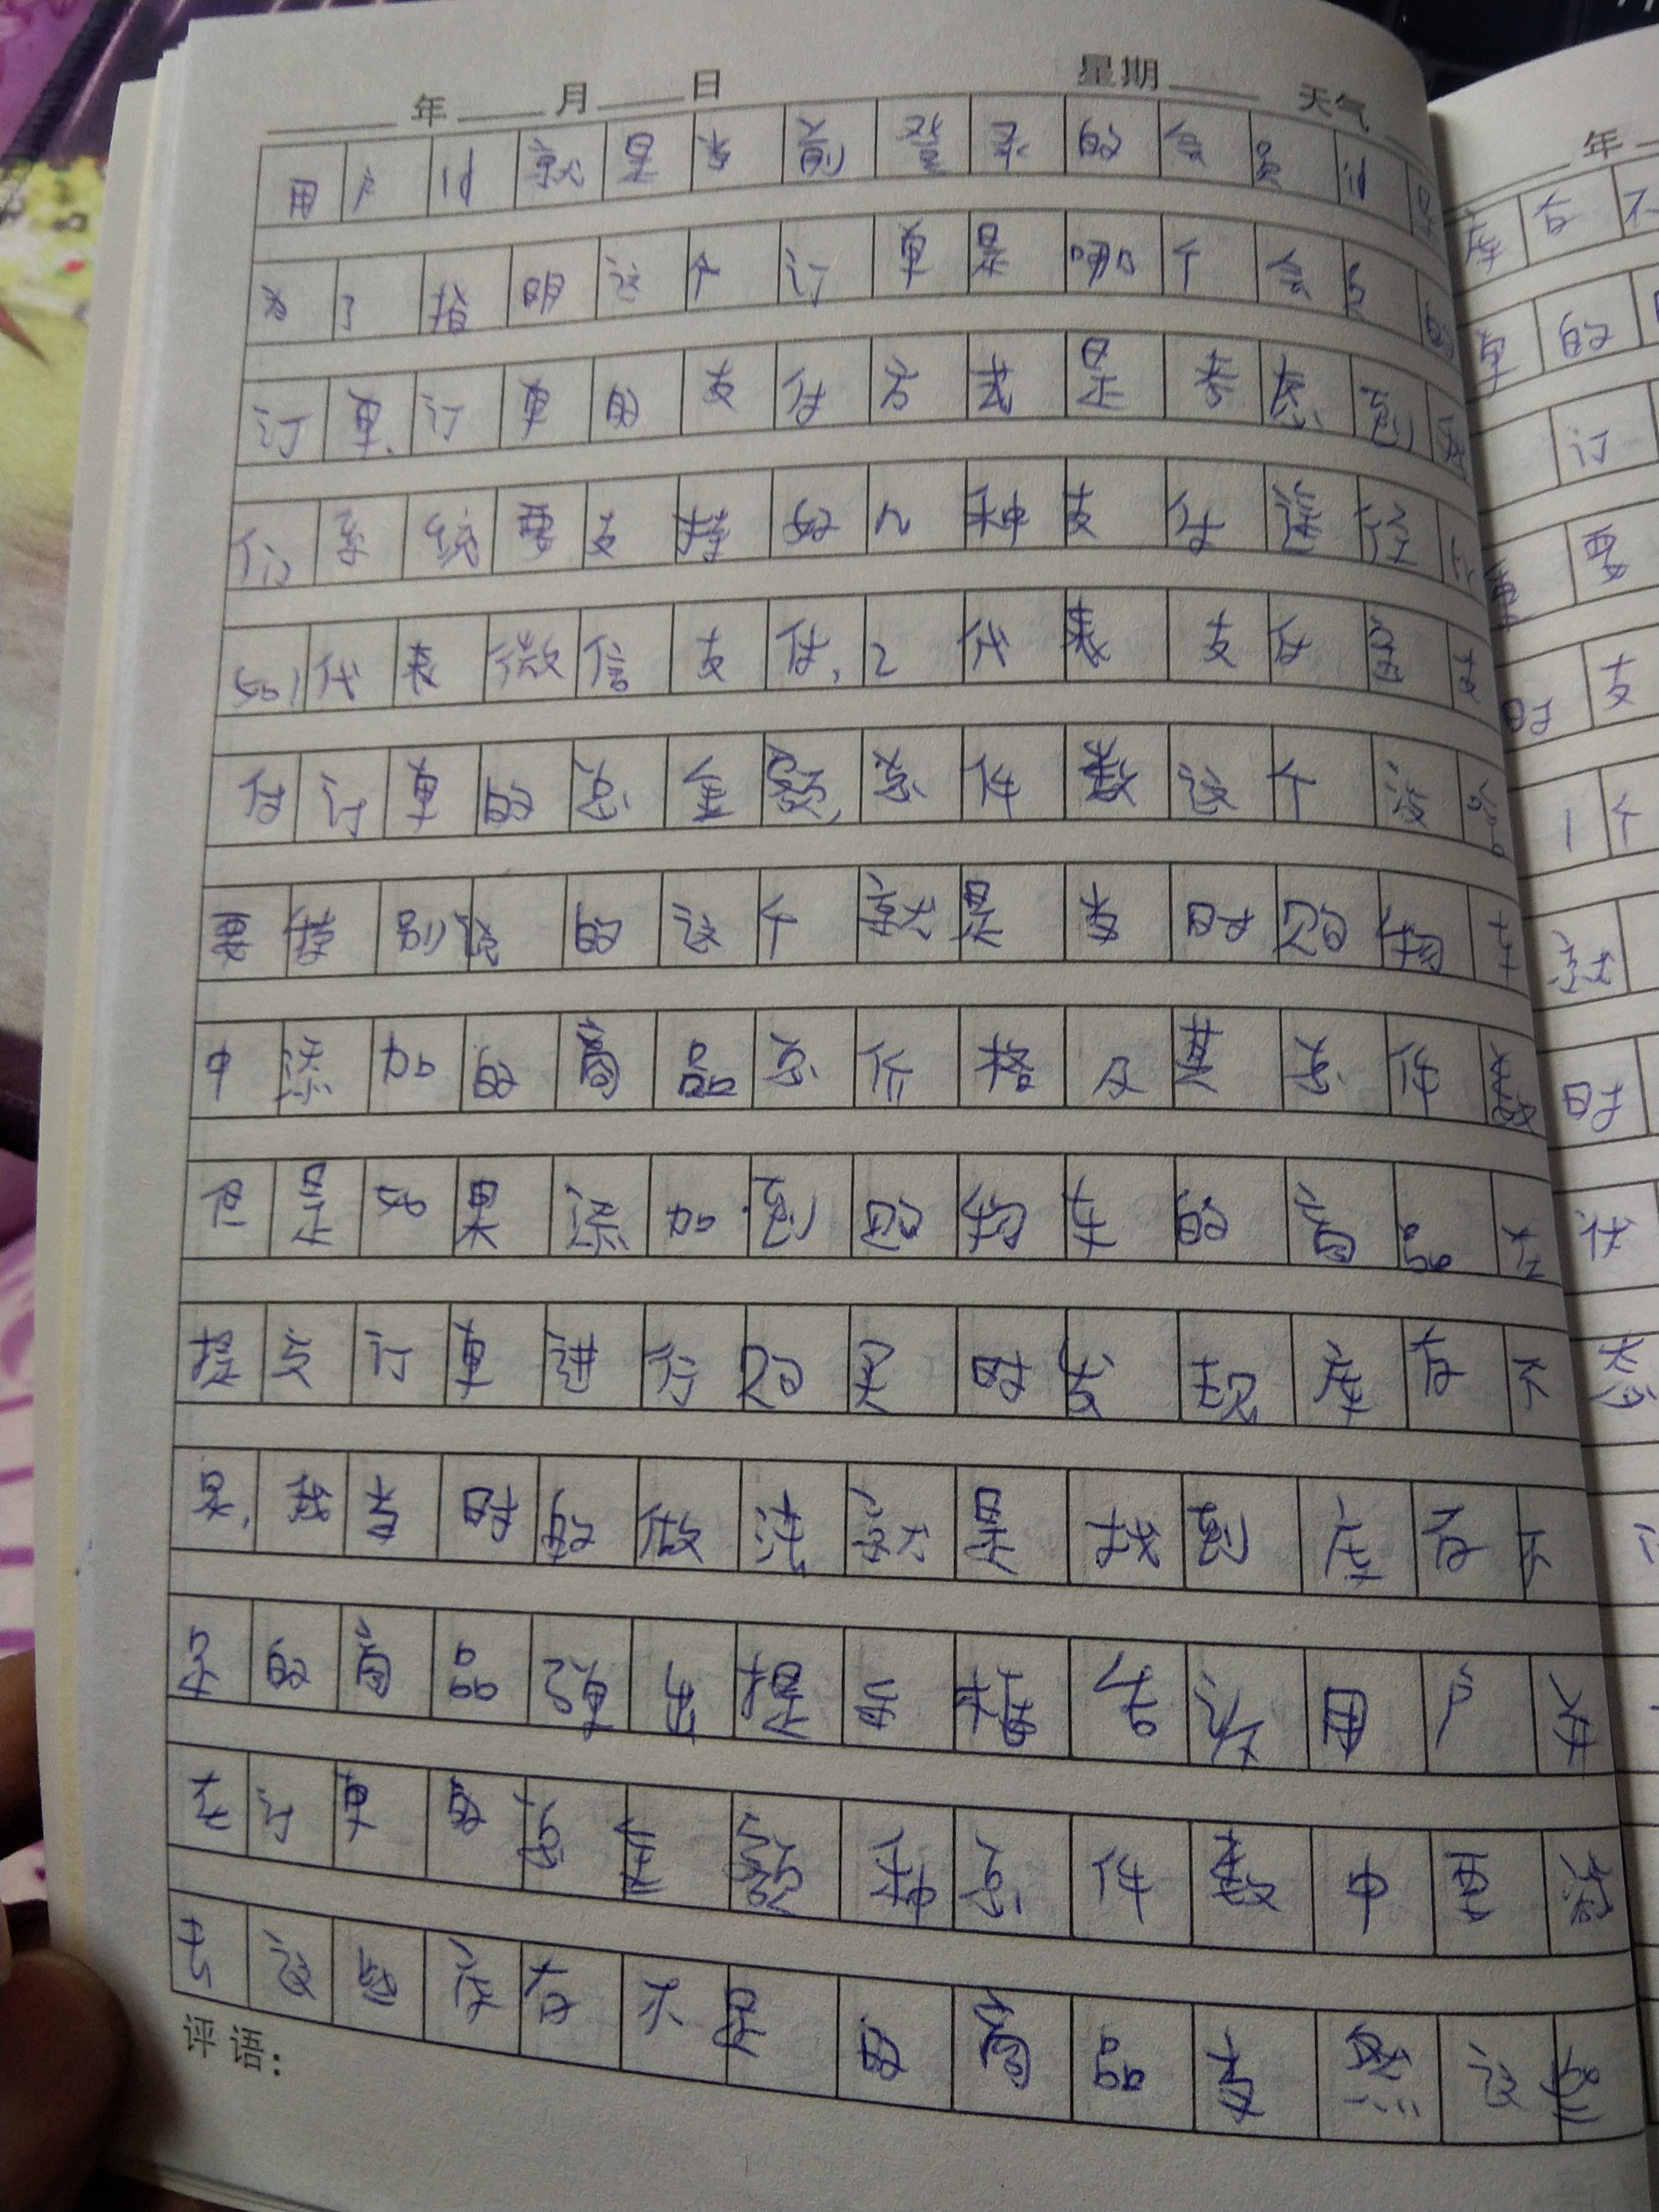 年 月 日 星期 天气
用户id就是当前登录的会员id是
为了指明这个订单是哪个会员的
订单、订单的支付方式是考虑到我
们系统要支持好几种支付途径
如1代表微信支付、2代表支付宝支
付订单的总金额、总件数这个没什么
要特别说的这个就是当时购物车
中添加的商品总价格及其总件数
但是如果添加到购物车的商品在
提交订单进行购买时发现库存不
足、我当时的做法就是找到库存不
足的商品弹出提示转告诉用户 并
在订单的总金额和总件数中
去这些库存不足的商品 然
评语：
年
库存不
单的
订
要
时支
1个
时